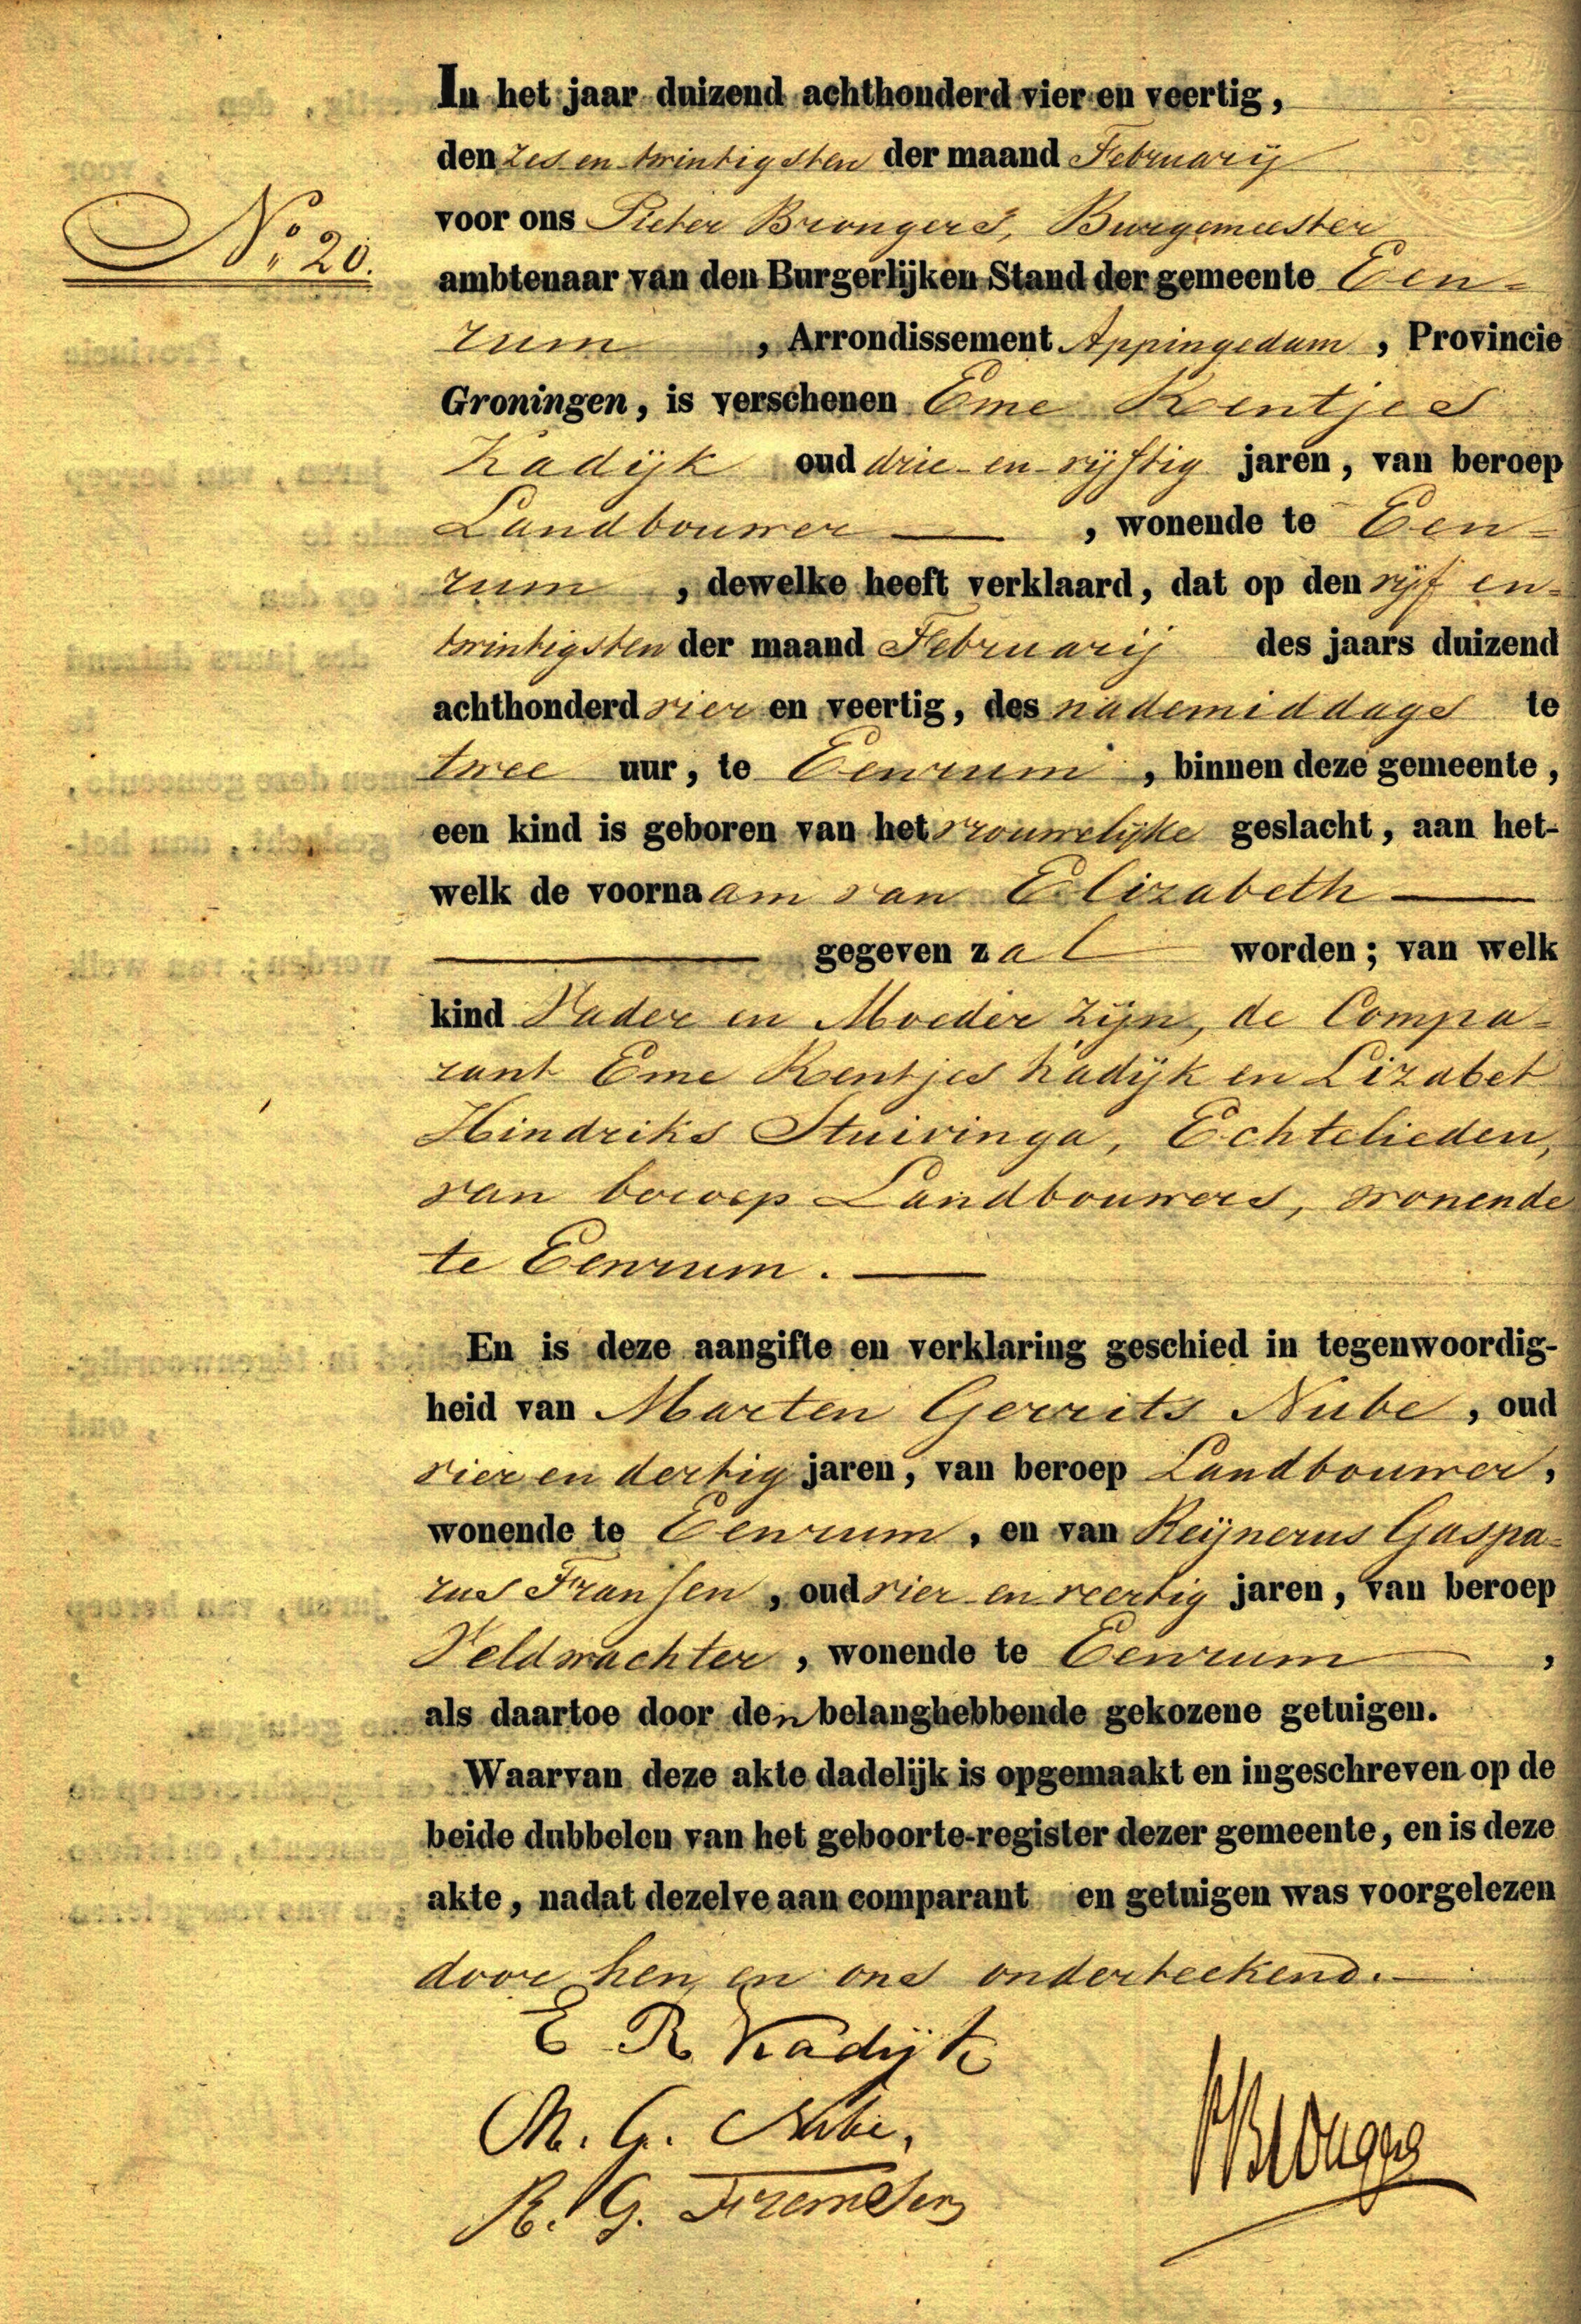 In het jaar duizend achthonderd vier en veertig,
den zes en twintigsten der maand Februarij
No. 20.
voor ons Pieter Brongers, Burgemeester
ambtenaar van den Burgerlijken Stand der gemeente Een=
rum , Arrondissement Appingedam , Provincie
Groningen, is verschenen Eme Rentjes
Kadijk oud drie en vijftig jaren, van beroep
Landbouwer , wonende te Een=
rum , dewelke heeft verklaard, dat op den vijf en=
twintigsten der maand Februarij des jaars duizend
achthonderd vier en veertig, des nademiddags te
twee uur, te Eenrum , binnen deze gemeente,
een kind is geboren van het vrouwelijke geslacht, aan het-
welk de voornaam van Elizabeth
gegeven zal worden; van welk
kind Vader en Moeder zijn, de Compa=
rant Eme Rentjes Kadijk en Lizabet
Hindriks Stuivinga, Echtelieden,
van beroep Landbouwers, wonende
te Eenrum.
En is deze aangifte en verklaring geschied in tegenwoordig-
heid van Marten Gerrits Nube , oud
vier en dertig jaren, van beroep Landbouwer,
wonende te Eenrum , en van Reijnerus Gaspa=
rus Fransen , oud vier en veertig jaren, van beroep
Veldwachter , wonende te Eenrum ,
als daartoe door den belanghebbende gekozene getuigen.
Waarvan deze akte dadelijk is opgemaakt en ingeschreven op de
beide dubbelen van het geboorte-register dezer gemeente, en is deze
akte, nadat dezelve aan comparant en getuigen was voorgelezen
door hen en ons onderteekend.
E R Kadijk
M. G. Nube,
PBrongers
R. G. Fransen